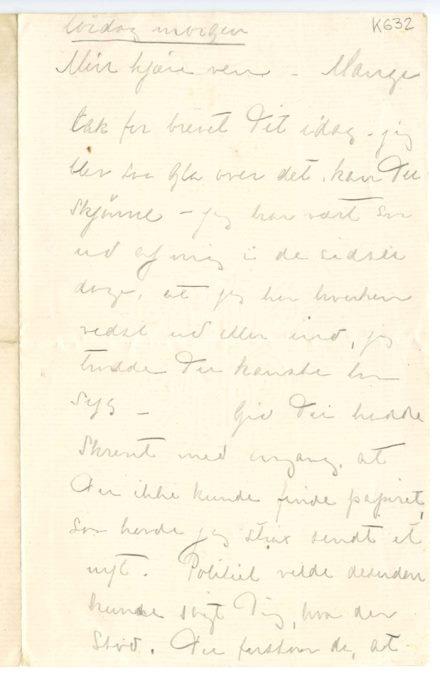 lördag morgen
K632
Min kjære ven – Mange
tak for brevet Dit idag – jeg
blev saa gla over det, kan Du
skjønne – jeg har vært saa
ud af mig i de sidste
dage, at jeg har hverken
vedst ud eller ind, jeg
trodde Du kanske var
syg – Gid Du hadde
skrevet med engang, at
Du ikke kunde finde papiret,
saa havde jeg strax sendt et
nyt. Politiet vilde desuden
kunde sagt Dig, hva der
stod. Du forstaar da, at